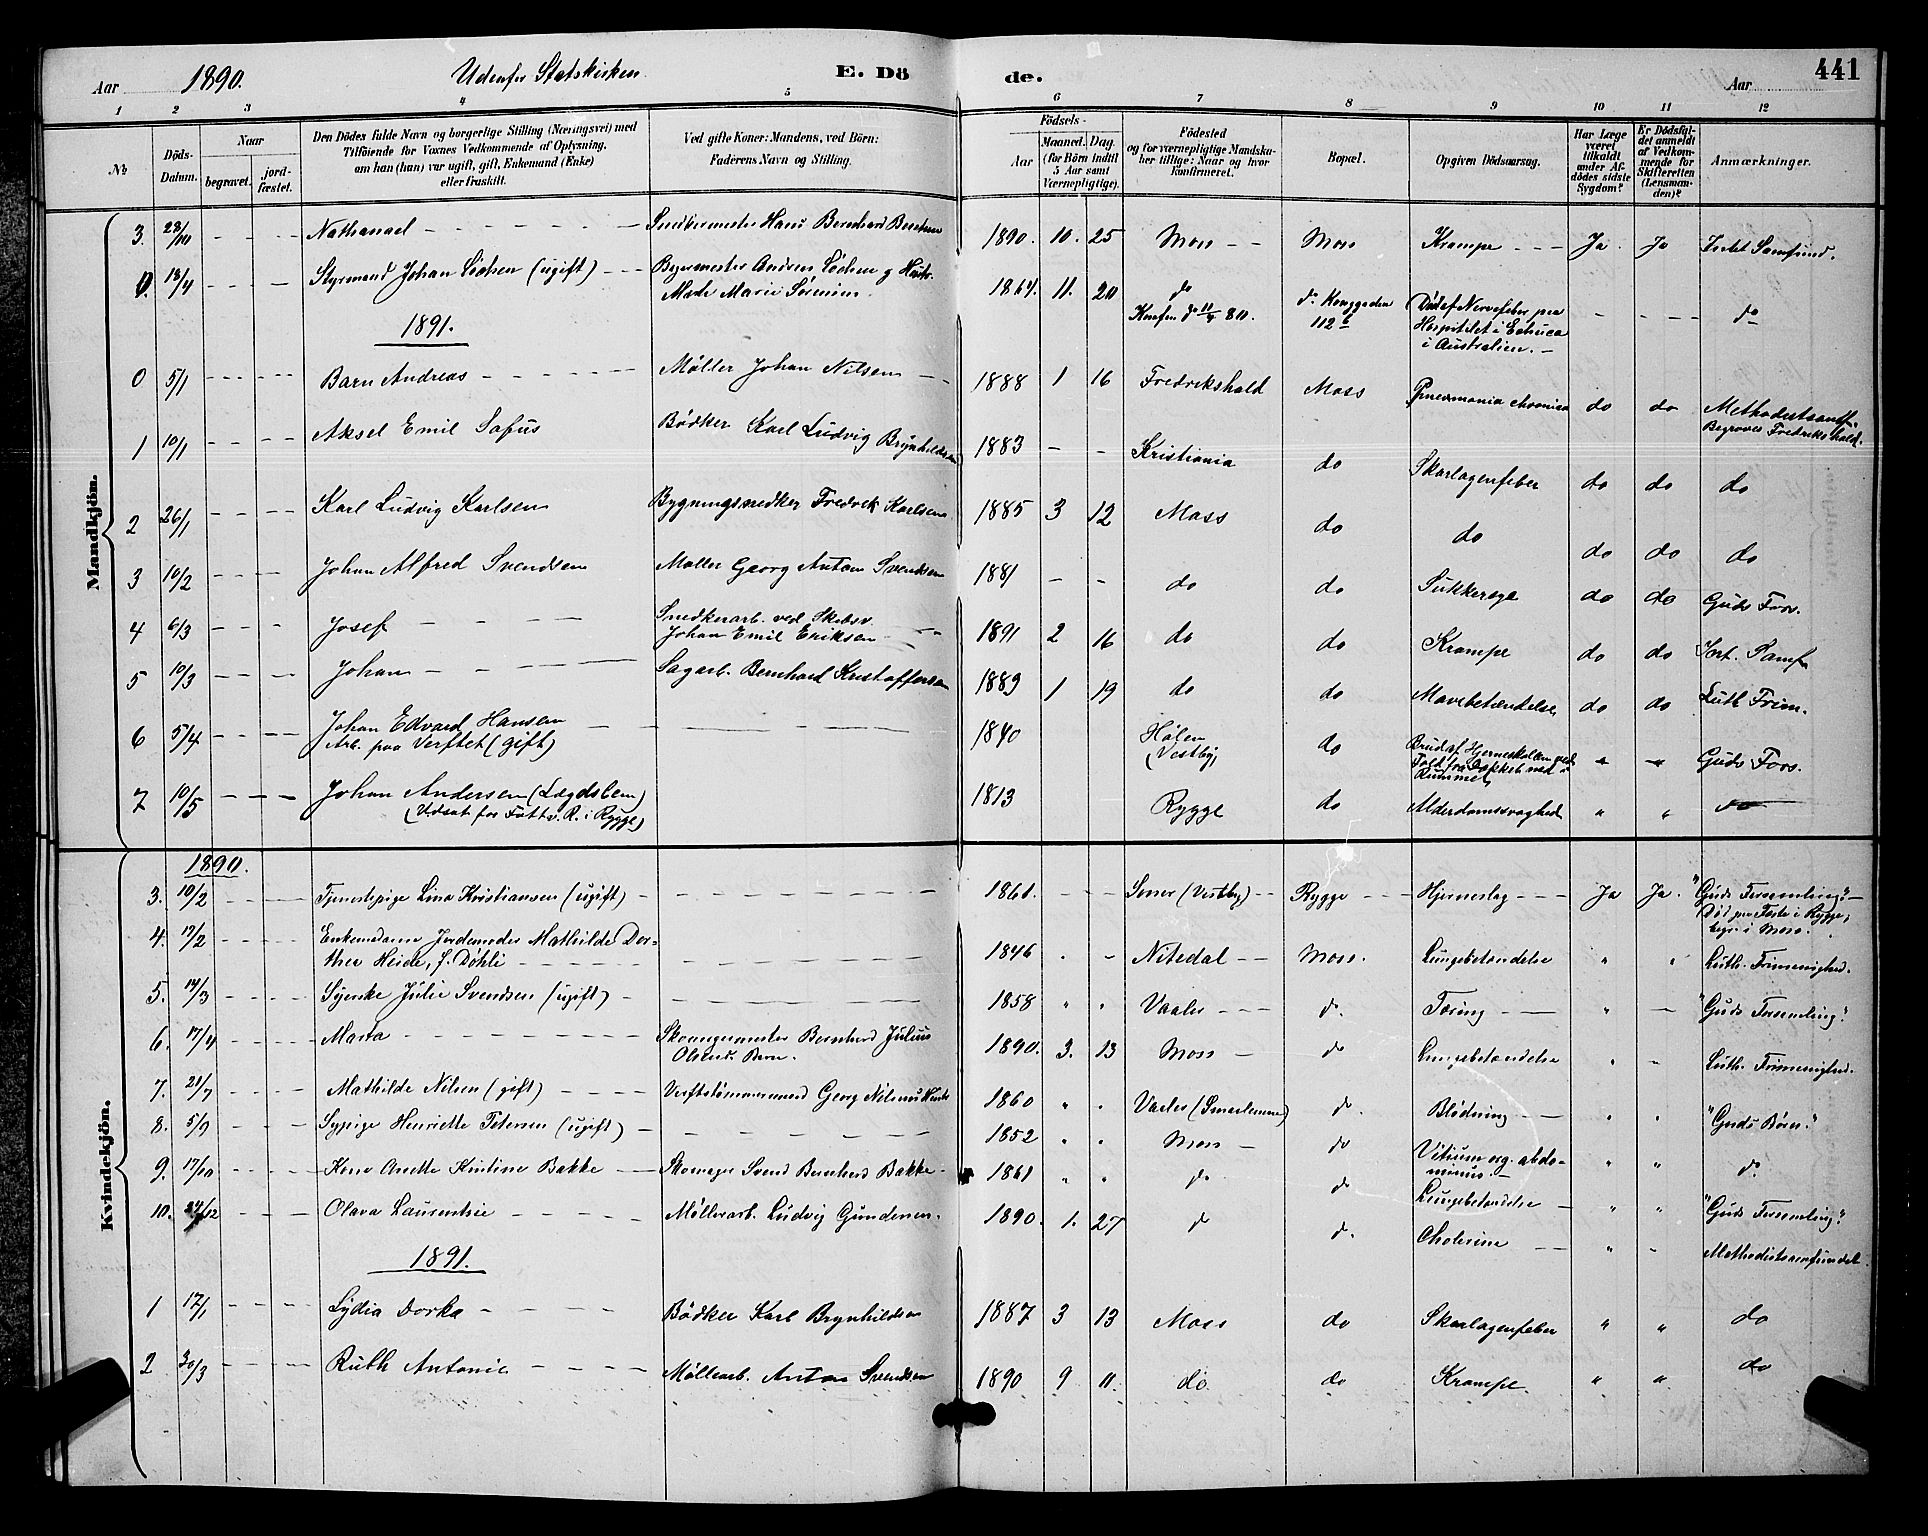 Aar 1890. Udenfor Statskirken. E. Dö
de. Aar 441
1 2 3 4 5 6 7 8 9 10 11 12
No
Döds-Datum.
Naar
begravet.
jordfæstet.
Den Dödes fulde Navn og borgerlige Stilling (Næringsvei) med
Tilföiende for Voxnes Vedkommende af Oplysning,
om han (hun) var ugift, gift, Enkemand (Enke)
eller fraskilt.
Ved gifte Koner: Mandens, ved Börn:
Faderens Navn og Stilling.
Födsels-
Aar
Maaned. Dag.
(for Börn indtil
5 Aar samt
Værnepligtige).
Födested
og for værnepligtige Mandskaber tillige: Naar og hvor
konfirmeret.
Bopæl.
Opgiven Dödsaarsag.
Har Læge
været
tilkaldt
under Afdödes sidste
Sygdom?
Er Dödsfaldet anmeldt
af Vedkommende for
Skifteretten
(Lensmanden)?
Anmærkninger.
Mandkjön.
3. 28/10 - - - Nathanael - - - Snedkermester Hans Bernhard 1890. 10. 25 Moss - - Moss Krampe - - - Ja. Ja Samfund.
0. 13/4 - - - Styrmand Johan (ugift) - - - Andreas
Marie Sörensen. 1864. 11. 20 do do Konggaden Död af Nervefeber paa - - - do
Konfm do 11/4 80. 112 b Hospitalet i Echuca
i Australien. -
1891.
0 5/1 - - - Barn Andreas - - - Møller Johan Nilsen - - 1888 1 16 Fredrikshald Moss Pneumonia chronica do do Methodistsamf.
Begraves Fredrikshald.
1 10/1 - - - Aksel Emil Sofus Bødker Karl Ludvig Brynhildsen 1883 - - Kristiania do Skarlagenfeber do do do
2 26/1 - - - Karl Ludvig Karlsen Bygningssnedker Fredrik Karlsen 1885 3 12 Moss do do do do do
3 10/2 - - - Johan Alfred Svendsen Møller Georg Anton Svendsen 1881 - - do do Sukkersyge do do Guds Fors.
4 6/3 - - - Josef - - - Snedkerarb. ved Skibsv.
Johan Emil Eriksen - - 1891 2 16 do do Krampe do do Samf
5 10/3 - - - Johan - - - Sagarb. Bernhard Kristoffersen 1889 1 19 do do Mavebetændelse do do Luth. Frim.
6 5/4 - - - Johan Edvard Hansen - - -
Arb. paa Verftet (gift) 1840 Hølen
(Vestby) do Brud af Hjerneskallen ved
Fald fra Dækket ned i
Rummet " " Guds Fors.
7 10/5 - - - Johan Andersen (Lægdslem)
(Udsat for Fattv. R. i Rygge) 1813 Rygge do Alderdomssvaghed " " do
Kvindekjön.
1890.
3. 10/2 - - - Tjenestepige Lina Kristiansen (ugift) - - - 1861. - - - Soner (Vestby) - - Rygge - - - Hjerneslag - - - Ja Ja. "Guds Forsamling". -
Død paa i Rygge,
begr. i Moss.
4. 17/2 - - - Enkemadame Jordemoder Mathilde Dorthea Heide, f. Döhli - - - 1846 - - Nitedal - - Moss. Lungebetændelse " " Luth. Frimenighed.
5. 14/3 - - - Syerske Julie Svendsen (ugift) - - - 1858 " " Vaaler - - - do. Tæring - - - " - "Guds Forsamling".
6. 17/4 - - - Marta - - - Skomagermester Bernhard Julius
Olsens Barn. 1890. 3. 13 Moss - do Lungebetændelse " - Luth. Frimenighed.
7. 21/7 - - - Mathilde Nilsen (gift) - - - Verftstömmermand Georg Nilsens 1860 " " Vaaler do. Blödning - - - " " "Guds Börn".
8. 5/9 - - - Sypige Henriette Petersen (ugift) - - - 1852 " " Moss - do Vitium org. abdominus. - " " do.
9. 17/10 - - - Kone Anette Kristine Bakke - - Skomager Svend Bernhard Bakke - 1861 " " do do Lungebetændelse - " " "Guds Forsamling".
10. 24/12 - - - Olava Laurentse - - - Møllerarb. Ludvig Gundersen. 1890. 1. 27 do do. Cholerine - - " - Methodistsamfundet.
1891.
1 17/1 - - - Lydia Dorka - - - Bödker Karl Brynhildsen 1887 3 13 Moss do Skarlagenfeber " " do
2 30/3 - - - Ruth Antonie - - - Møllerarb. Anton Svendsen 1890 9 11 do. do Krampe. " " do